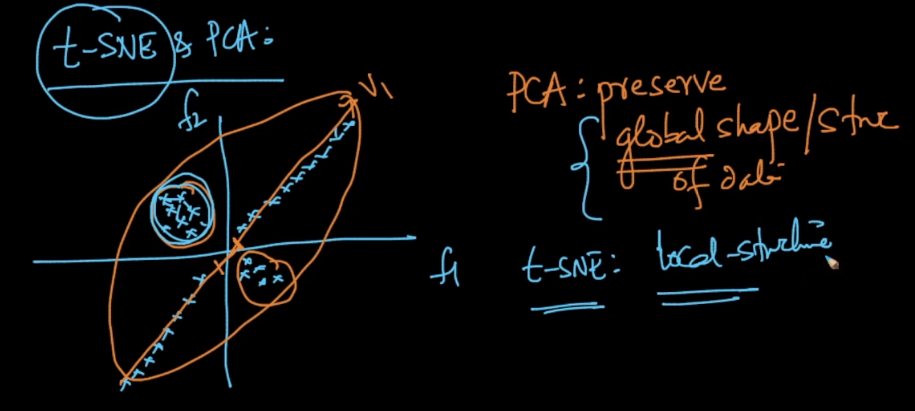 t-SNE & PCA:
f2
V1
PCA: preserve
global shape/struc
of data
f1
t-SNE: local-structure